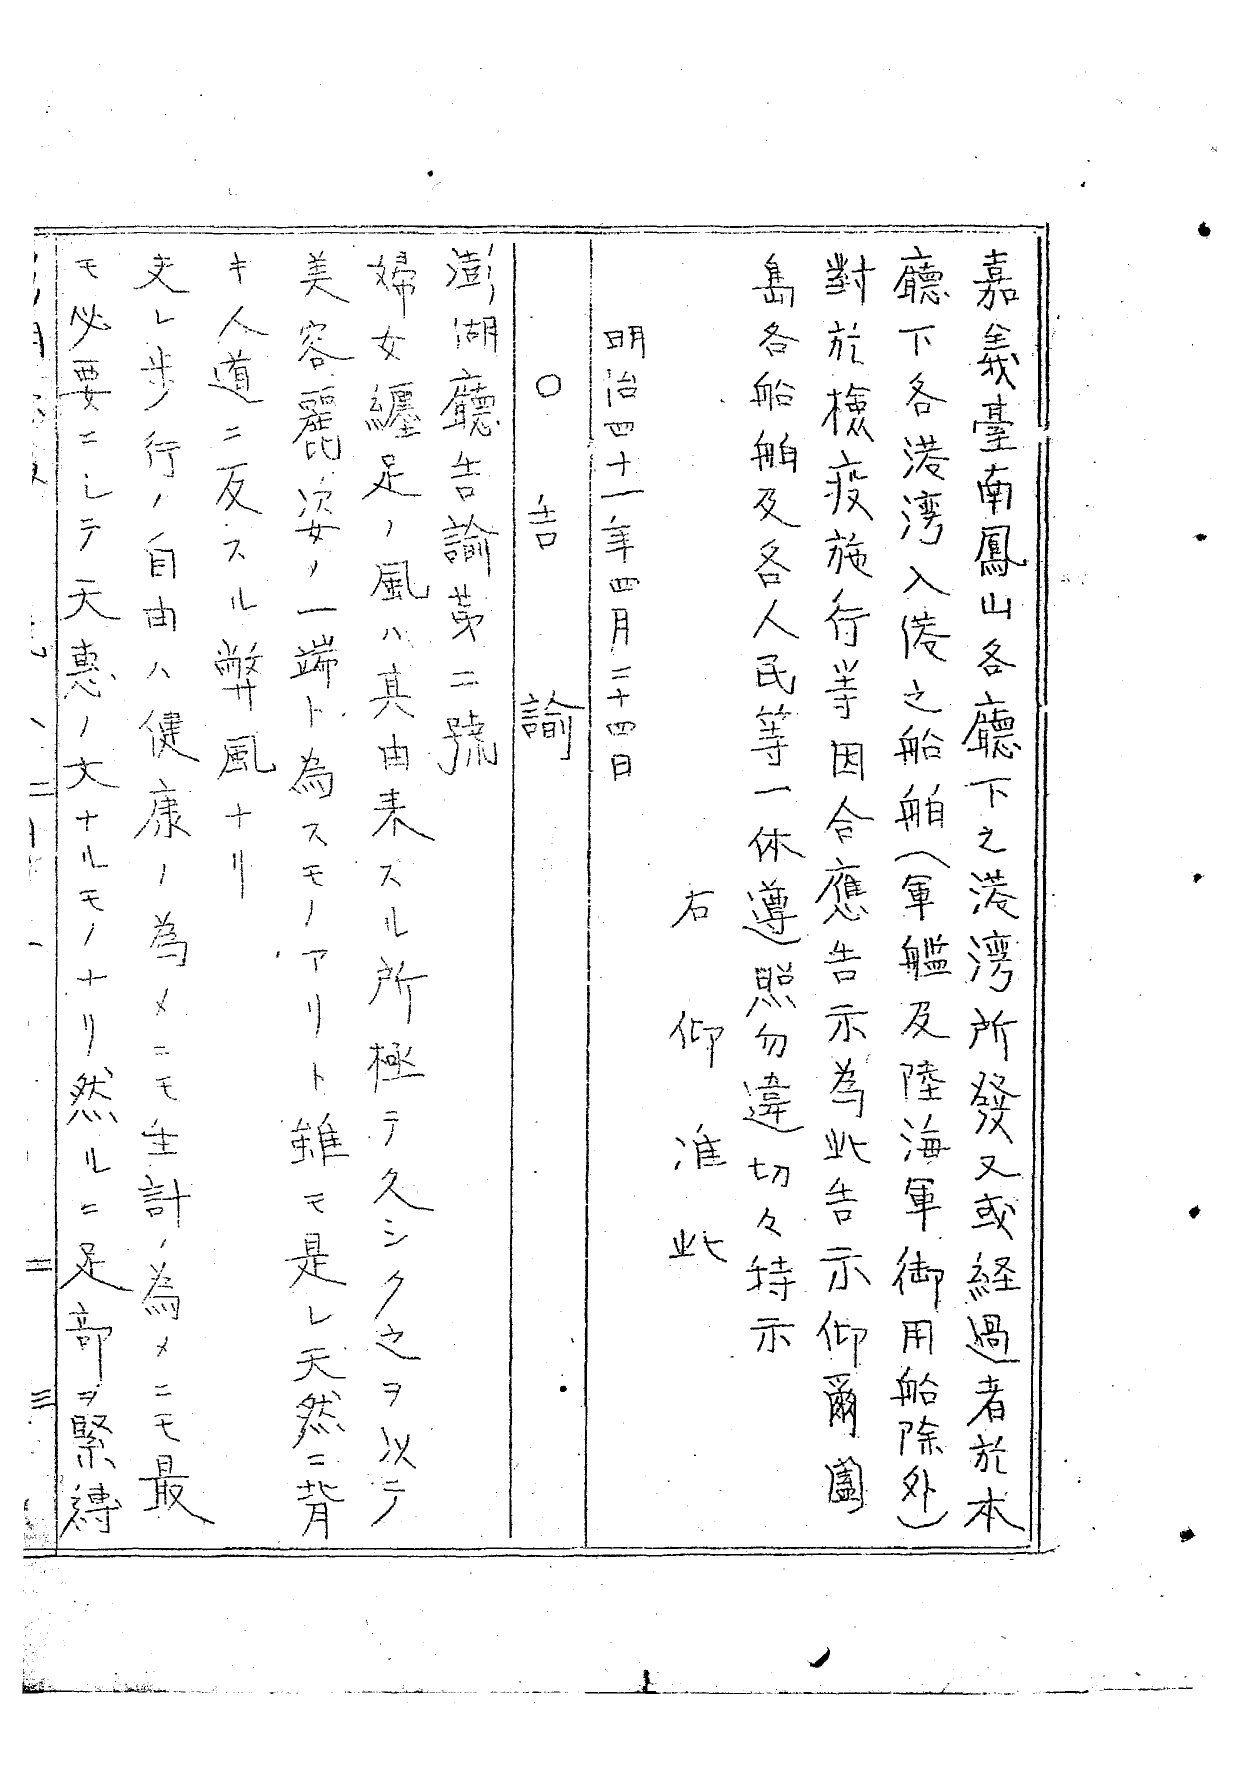 嘉義臺南鳳山各廳下之港湾所發又或経過者於本
廳下各港湾入港之船舶(軍艦及陸海軍御用船除外)
對於檢疫施行等因合應告示為此告示仰爾闔
島各船舶及各人民等一体遵照勿違切々特示
右仰准此
明治四十一年四月二十四日
○告諭
澎湖廳告諭第二號
婦女纒足ノ風ハ其由来スル所極テ久シク之ヲ以テ
美容麗姿ノ一端ト為スモノアリト雖モ是レ天然ニ背
キ人道ニ反スル弊風ナリ
夫レ歩行ノ自由ハ健康ノ為メニモ生計ノ為メニモ最
モ必要ニシテ天恵ノ大ナルモノナリ然ルニ足部ヲ緊縛